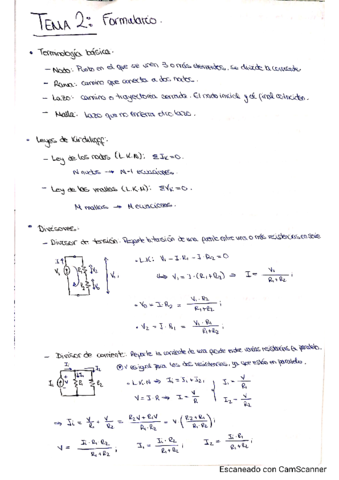 TEMA 2: Formulario.
• Terminología básica.
– Nodo: Punto en el que se unen 3 o más elementos, se divide la corriente
– Rama: camino que conecta a dos nodos.
– Lazo: camino o trayectoria cerrada. El nodo inicial y el final coinciden.
– Malla: lazo que no encierra otro lazo.
• Leyes de Kirchhoff:
– Ley de los nodos (L.K.N): ΣIk=0.
N nudos → N-1 ecuaciones.
– Ley de las mallas (L.K.M): ΣVk=0.
M mallas → M ecuaciones.
• Divisores:
– Divisor de tensión: Reparte la tensión de una fuente entre una o más resistencias en serie
• LK: V1 - I·R1 - I·R2 = 0
⇒ V1 = I·(R1+R2) ⇒ I = V1/(R1+R2);
• V0 = I·R2 = V1·R2/(R1+R2);
• V2 = I·R1 = V1·R1/(R1+R2);
– Divisor de corriente: Reparte la corriente de una fuente entre varias resistencias en paralelo.
es igual para las dos resistencias, ya que están en paralelo.
– L.K.N ⇒ Ii = I1 + I2;
V = I·R ⇒ I = V/R
I1 = V/R1
I2 = V/R2
⇒ Ii = V/R1 + V/R2 = (R2V + R1V)/(R1·R2) = V((R2+R1)/(R1·R2))
V = Ii·R1·R2/(R1+R2); I1 = Ii·R2/(R1+R2); I2 = Ii·R1/(R1+R2);
Escaneado con CamScanner